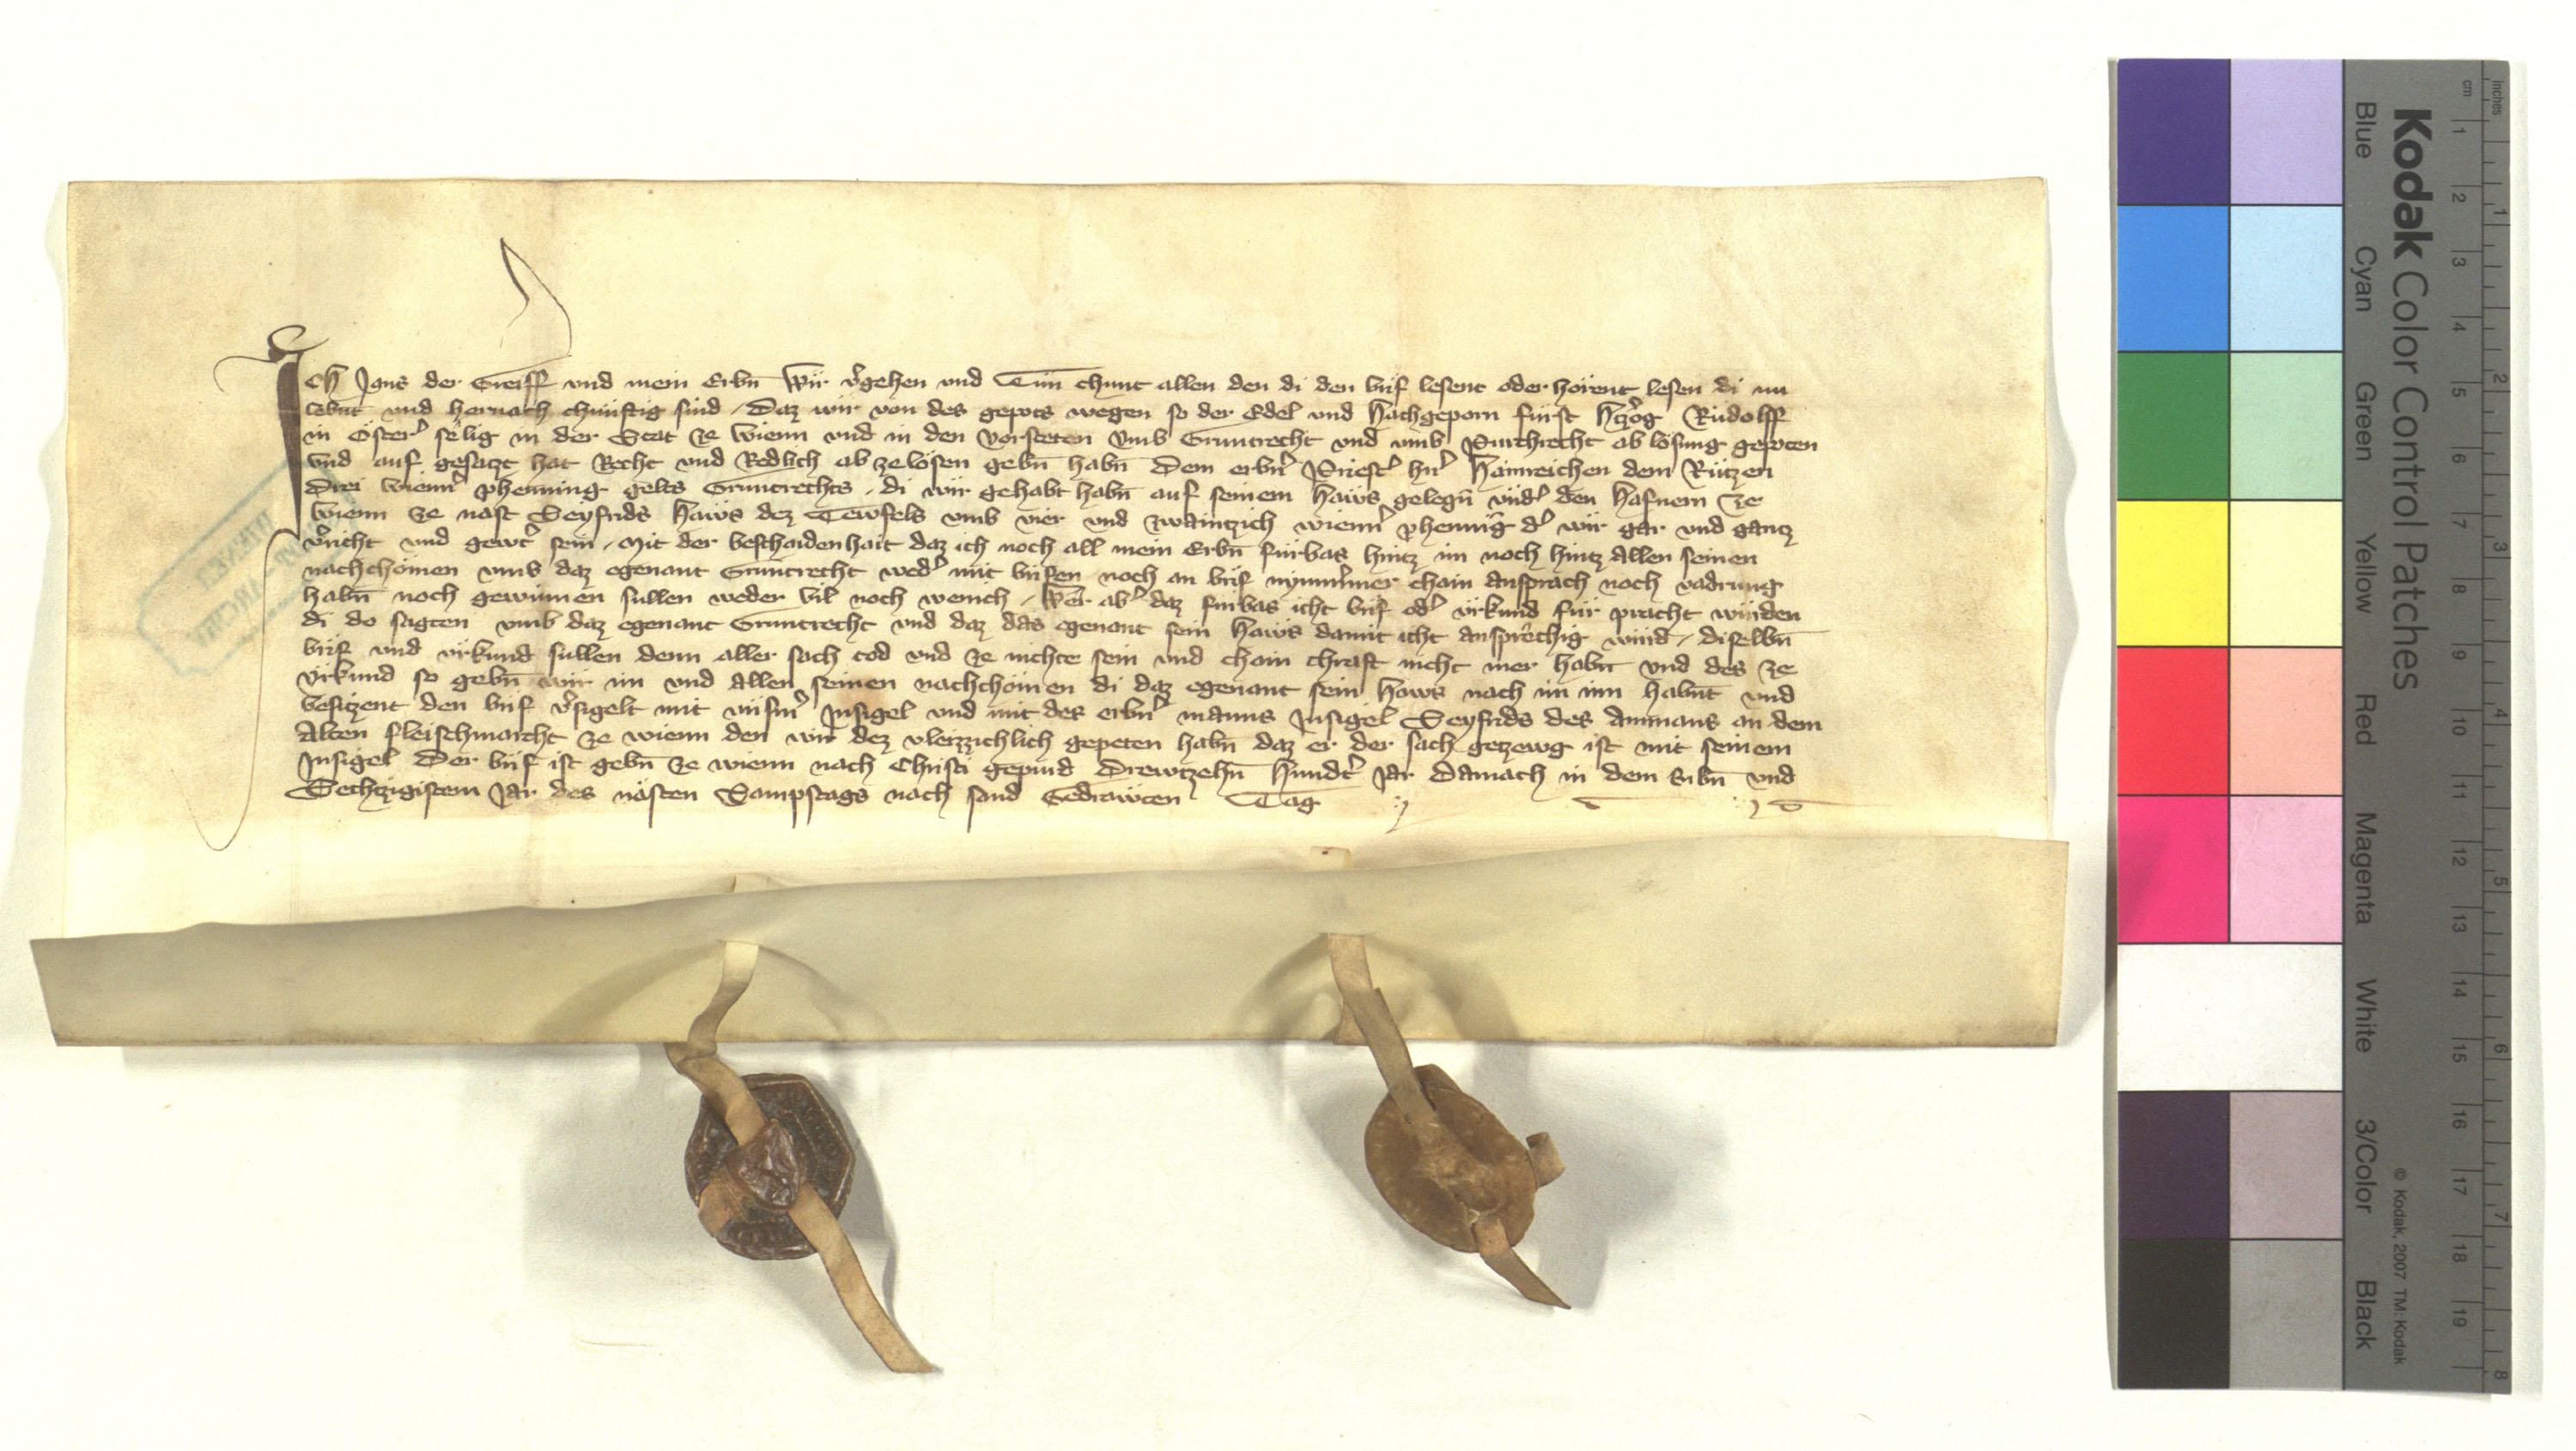 Ich Jans der Greiff und mein Erbn̄ Wir v̾gehen und Tun chunt allen den di den brif lesent oder hörent lesen di nu
lebnt und hernach chünftig sind / Daz wir von des gepots wegen so der Edel und Hachgeporn fürst Htzog Rudolff
in Öster̾ sêlig in der Stat ze Wienn und in den vorsteten umb Gruntrecht und umb Purchrecht ab lösung geboten
und auf gesatzt hat Recht und Redlich ab ze lösen gebn̄ habn̄ Dem erbn̾ Priest̾ hn̾ Hainreichen dem Rützen
Drei wienn̾ phenning gelts Gruntrechts / di wir gehabt habn̄ auf seinem Haws gelegn̄ und̾ den Hafnern ze
Wienn ze nast Seyfrids Haws dez Tewfels umb vier und zwaintzich wienn̾ phenni̅g d̾ wir gar und gantz
v̾richt und gewert sein / Mit der beschaidenhait daz ich noch all mein Erbn̄ fürbas hintz im noch hintz allen seinen
nachchömen umb daz egenant Gruntrecht wed̾ mit brifen noch an brif nymm̾mer chain ansprach noch vadrung
habn̄ noch gewinnen sullen weder vil noch wenich / Wer ab̾ daz fürbas icht brif od̾ ürkund für pracht würden
di do sagten umb daz egenant Gruntrecht und daz das egenant sein Haws damit icht ansprêchig würd / diselbn̄
brif und ürkund sullen denn aller sach tod und ze nichte sein und chain chraft nicht mer habn̄ und des ze
ürkund so gebn̄ wir im und allen seinen nachchömen di daz egenant sein Haws nach im inn habnt und
besitzent den brif v̾sigelt mit unsm̾ Insigel und mit des erbn̾ manns Insigel Seyfrids des Ammans an dem
Alten fleischmarcht ze wienn den wir dez vleizzichlich gepeten habn̄ daz er der sach getzewg ist mit seinem
Insigel Der brif ist gebn̄ ze wienn nach Christi gepurd Drewtzehn̄ Hundt̾ Jar Darnach in dem Sibn̄ und
Sechtzigistem Jar des nâsten Sampstags nach sand Gedrawten Tag
Kodak Color Control Patches
Blue Cyan Green Yellow Red Magenta White 3/Color Black
© Kodak, 2007 TM: Kodak
inches 1 2 3 4 5 6 7 8
cm 1 2 3 4 5 6 7 8 9 10 11 12 13 14 15 16 17 18 19